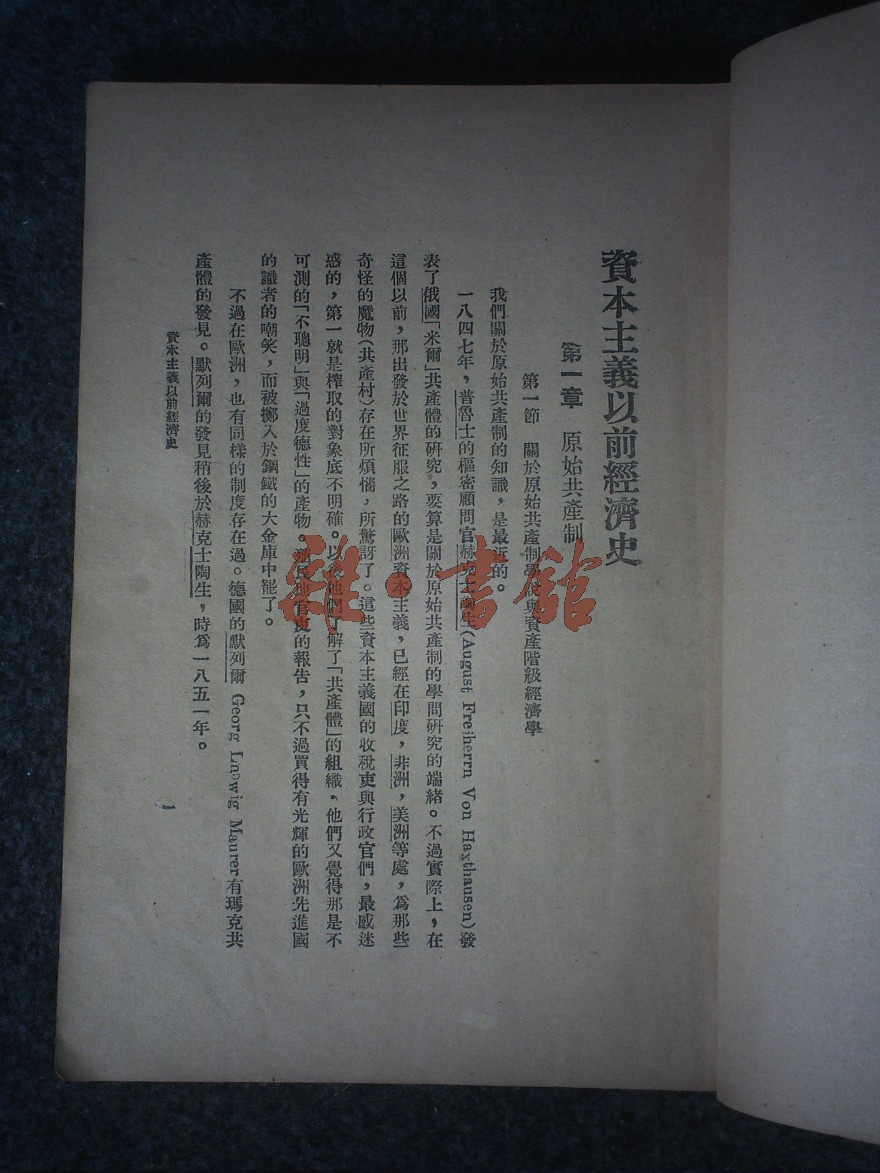 資本主義以前經濟史
第一章 原始共產制
第一節 關於原始共產制學說與資產階級經濟學
我們關於原始共產制的知識，是最近的。
一八四七年，普魯士的樞密顧問官赫克士陶生(August Freiherrn Von Haxthausen)發
表了俄國「米爾」共產體的研究，要算是關於原始共產制的學問研究的端緒。不過實際上，在
這個以前，那出發於世界征服之路的歐洲資本主義，已經在印度，非洲，美洲等處，爲那些
奇怪的魔物(共產村)存在所煩惱，所驚訝了。這些資本主義國的收稅吏與行政官們，最感迷
惑的，第一就是榨取的對象底不明確。以後他們了解了「共產體」的組織，他們又覺得那是不
可測的「不聰明」與「過度德性」的產物。殖民地官吏的報告，只不過買得有光輝的歐洲先進國
的識者的嘲笑，而被擲入於鋼鐵的大金庫中罷了。
不過在歐洲，也有同樣的制度存在過。德國的默列爾 Georg Lnowig Maurer 有瑪克共
產體的發見。默列爾的發見稍後於赫克士陶生，時爲一八五一年。
資本主義以前經濟史
一
雜·書館